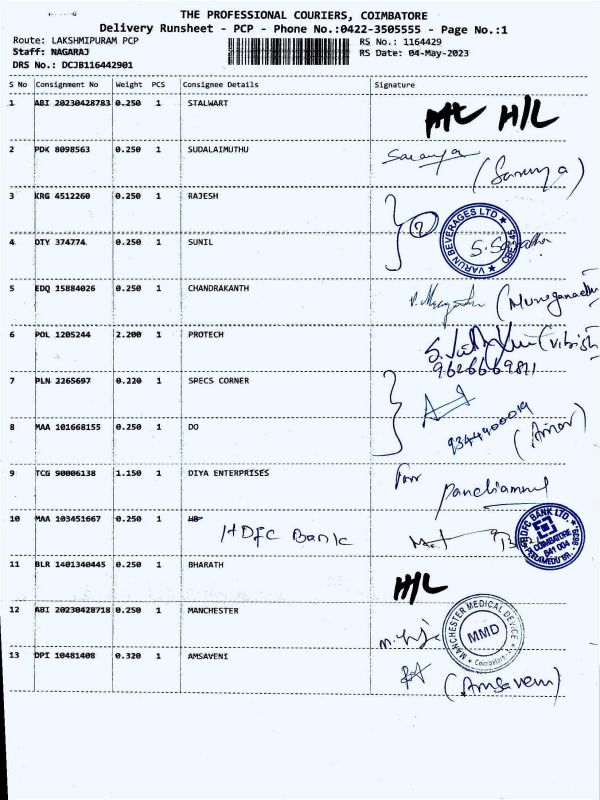 THE PROFESSIONAL COURIERS, COIMBATORE
Delivery Runsheet - PCP - Phone No.:0422-3505555 - Page No.:1
Route: LAKSHMIPURAM PCP RS No.: 1164429
Staff: NAGARAJ RS Date: 04-May-2023
DRS No.: DCJB116442901
S No Consignment No Weight PCS Consignee Details Signature
1 ABI 20230428783 0.250 1 STALWART H/L
2 PDK 8098563 0.250 1 SUDALAIMUTHU Saranya (Saranya)
3 KRG 4512260 0.250 1 RAJESH
VARUN BEVERAGES LTD CBE-45
4 DTY 374774 0.250 1 SUNIL
5 EDQ 15884026 0.250 1 CHANDRAKANTH
6 POL 1205244 2.200 1 PROTECH
7 PLN 2265697 0.220 1 SPECS CORNER
9344900019
8 MAA 101668155 0.250 1 DO
9 TCG 90006138 1.150 1 DIYA ENTERPRISES
10 MAA 103451667 0.250 1 HB HDFC Bank
HDFC BANK LTD. COIMBATORE 641 004
11 BLR 1401340445 0.250 1 BHARATH H/L
12 ABI 20230428718 0.250 1 MANCHESTER
MANCHESTER MEDICAL DEVICE MMD
13 DPI 10481408 0.320 1 AMSAVENI (Amsaveni)